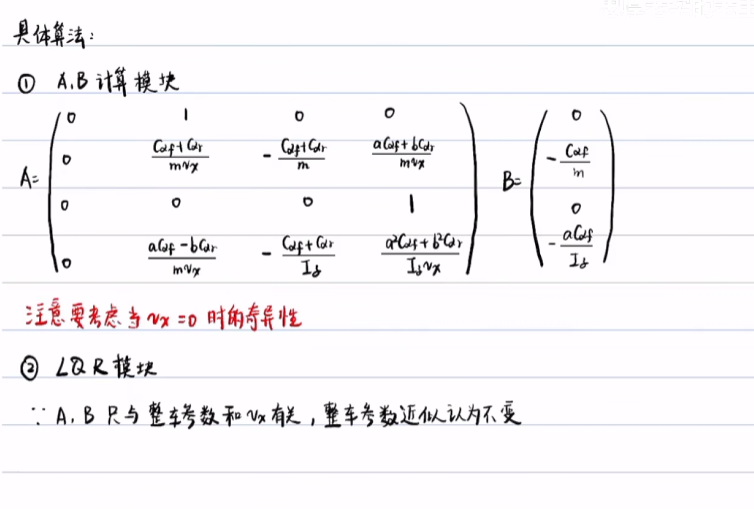 具体算法:
① A,B 计算模块
A= ( 0 1 0 0
0 (Cαf+Cαr)/(mvx) -(Cαf+Cαr)/m (aCαf+bCαr)/(mvx)
0 0 0 1
0 (aCαf-bCαr)/(mvx) -(Cαf+Cαr)/I (a²Cαf+b²Cαr)/(Ivx) )
B= ( 0
-Cαf/m
0
-aCαf/I )
注意要考虑当 vx=0 时的奇异性
② LQR模块
∵ A,B 只与整车参数和 vx 有关,整车参数近似认为不变